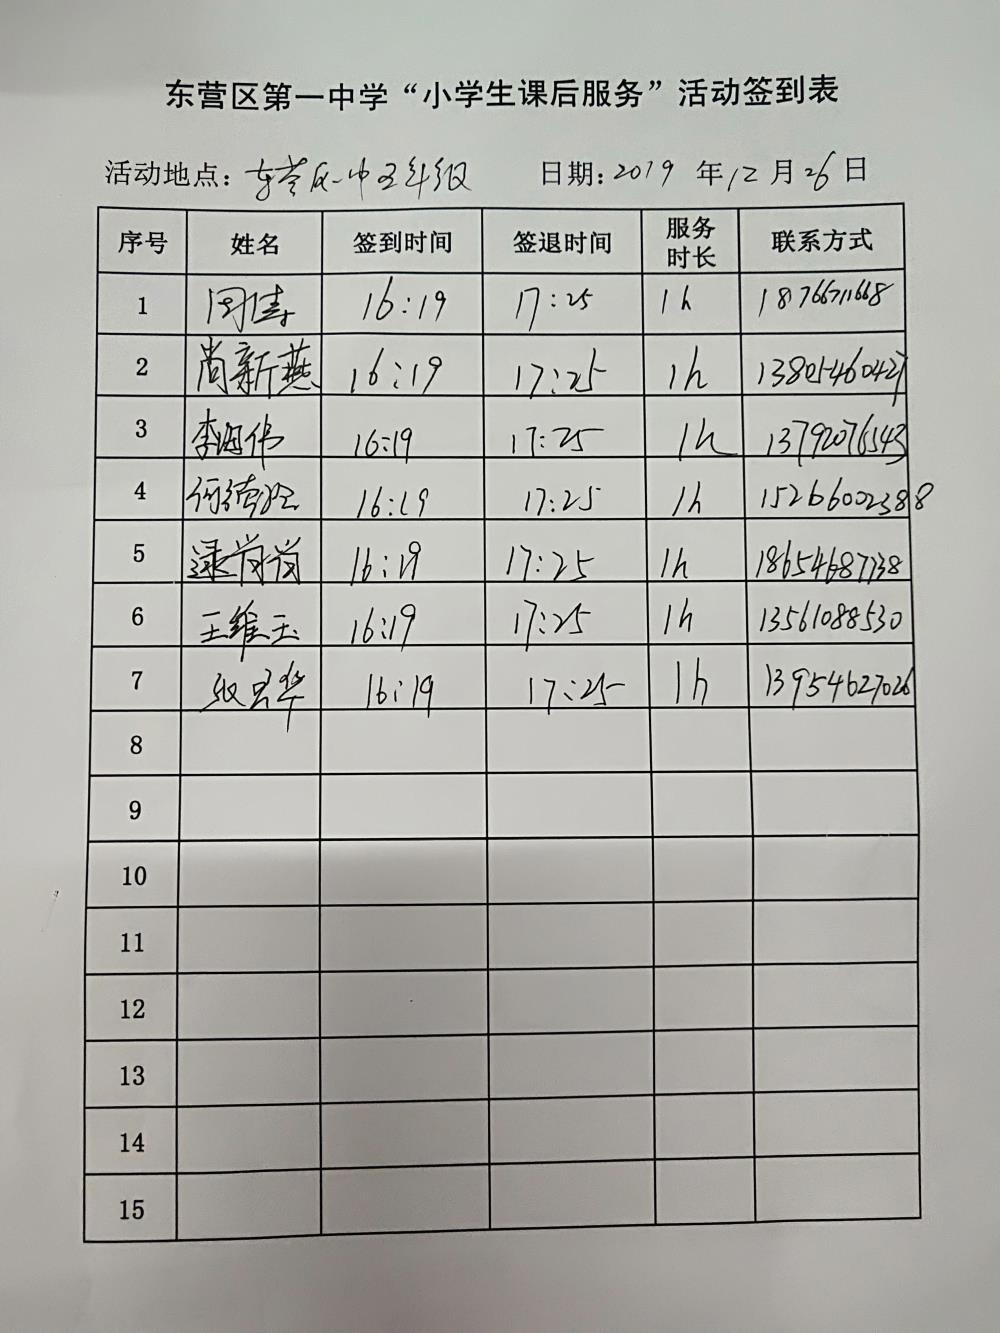 东营区第一中学“小学生课后服务”活动签到表
活动地点：东营区一中五年级 日期：2019 年 12 月 26 日
序号 姓名 签到时间 签退时间 服务时长 联系方式
1 闫倩 16:19 17:25 1h 18766711668
2 尚新燕 16:19 17:25 1h 13805460427
3 李海伟 16:19 17:25 1h 13792076543
4 何德 16:19 17:25 1h 15266002388
5 逯肖肖 16:19 17:25 1h 18654687738
6 王维玉 16:19 17:25 1h 13561088530
7 16:19 17:25 1h 13954627026
8
9
10
11
12
13
14
15